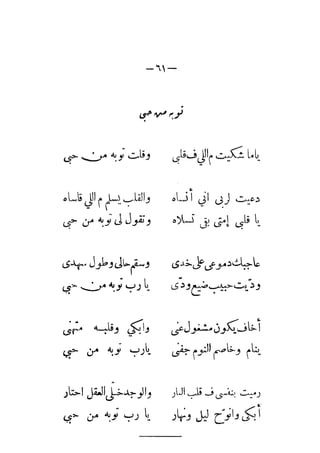 — ٦١ —
توبه من حبى
ياما شكيت م اللي ف قلبى وقلت توبه من حبى
دعيت لربى انى أنساه والقلب يسلم م اللي قاساه
يا قلبى إمتى بق تسلاه وتقول لى توبه من حبى
عاجبك دموعى على خدى وسقم حالى وطول سهدى
وديت حبيب ضيع ودّى يا رب توبه من حبى
أخاف يكون مشغول عنى وابكي وقلبـه متهنى
ينام وخاصم النوم جفنى يارب توبه من حبى
رميت بنفسى ف قلب النار والوجد خلّى العقل احتار
أبكى وانوّح ليل ونهار يا رب توبه من حبى